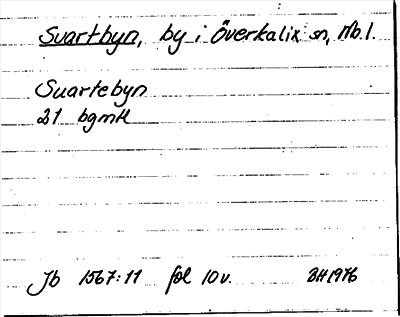 Svartbyn, by i Överkalix sn, Nb.l.
Suartebyn
21 bgmtl
Jb 1567:11 fol 10v. BH 1976